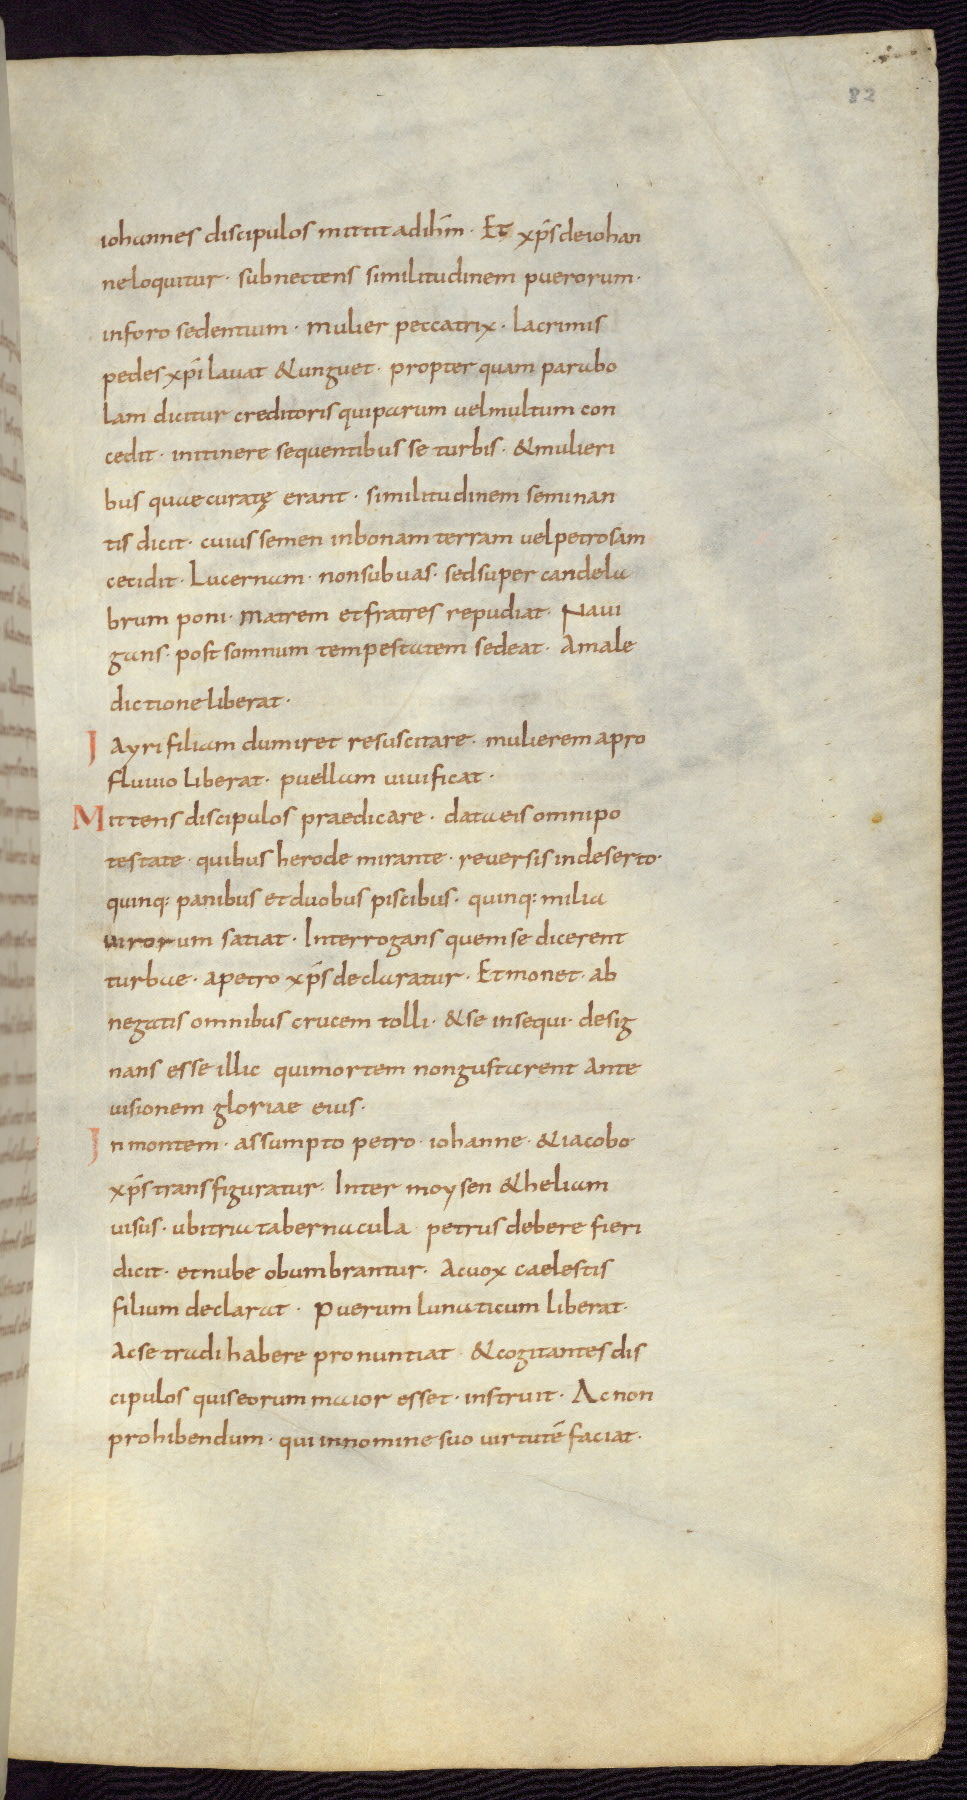 82
iohannes discipulos mittit adihm̅ · Et xp̅s deiohan
neloquitur · subnectens similitudinem puerorum ·
inforo sedentium · mulier peccatrix · lacrimis
pedes xp̅i lauat & unguet · propter quam parabo
lam dicitur creditoris quiparum uelmultum con
cedit · initinere sequentibus se turbis · & mulieri
bus quae curatę erant · similitudinem seminan
tis dicit · cuius semen inbonam terram uelpetrosam
cecidit · Lucernam · nonsubuas · sedsuper candela
brum poni · matrem etfratres repudiat · Naui
gans · post somnum tempestatem sedeat · Amale
dictione liberat ·
J Ayri filiam dumiret resuscitare · mulierem apro
fluuio liberat · puellam uiuificat ·
Mittens discipulos praedicare · data eis omnipo
testate · quibus herode mirante · reuersis indeserto ·
quinq: panibus et duobus piscibus · quinq: milia
uirorum satiat · Interrogans quemse dicerent
turbae · apetro xp̅s declaratur · Et monet · ab
negatis omnibus crucem tolli · & se insequi · desig
nans esse illic quimortem nongustarent ante
uisionem gloriae eius ·
Jn montem · assumpto petro · iohanne · & iacobo
xp̅s transfiguratur · Inter moysen & heliam
uisus · ubitria tabernacula petrus debere fieri
dicit · etnube obumbrantur · Acuox caelestis
filium declarat · Puerum lunaticum liberat ·
Acse tradi habere pronuntiat · & cogitantes dis
cipulos quiseorum maior esset · instruit · Ac non
prohibendum · qui innomine suo uirtutē faciat ·